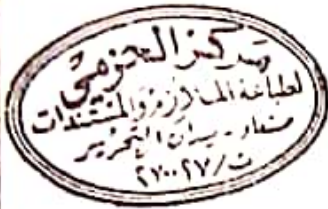 مركز العزمي
لطباعة الملازم والمستندات
صنعاء - ميدان التحرير
ت/٢٧٠٠٢٧